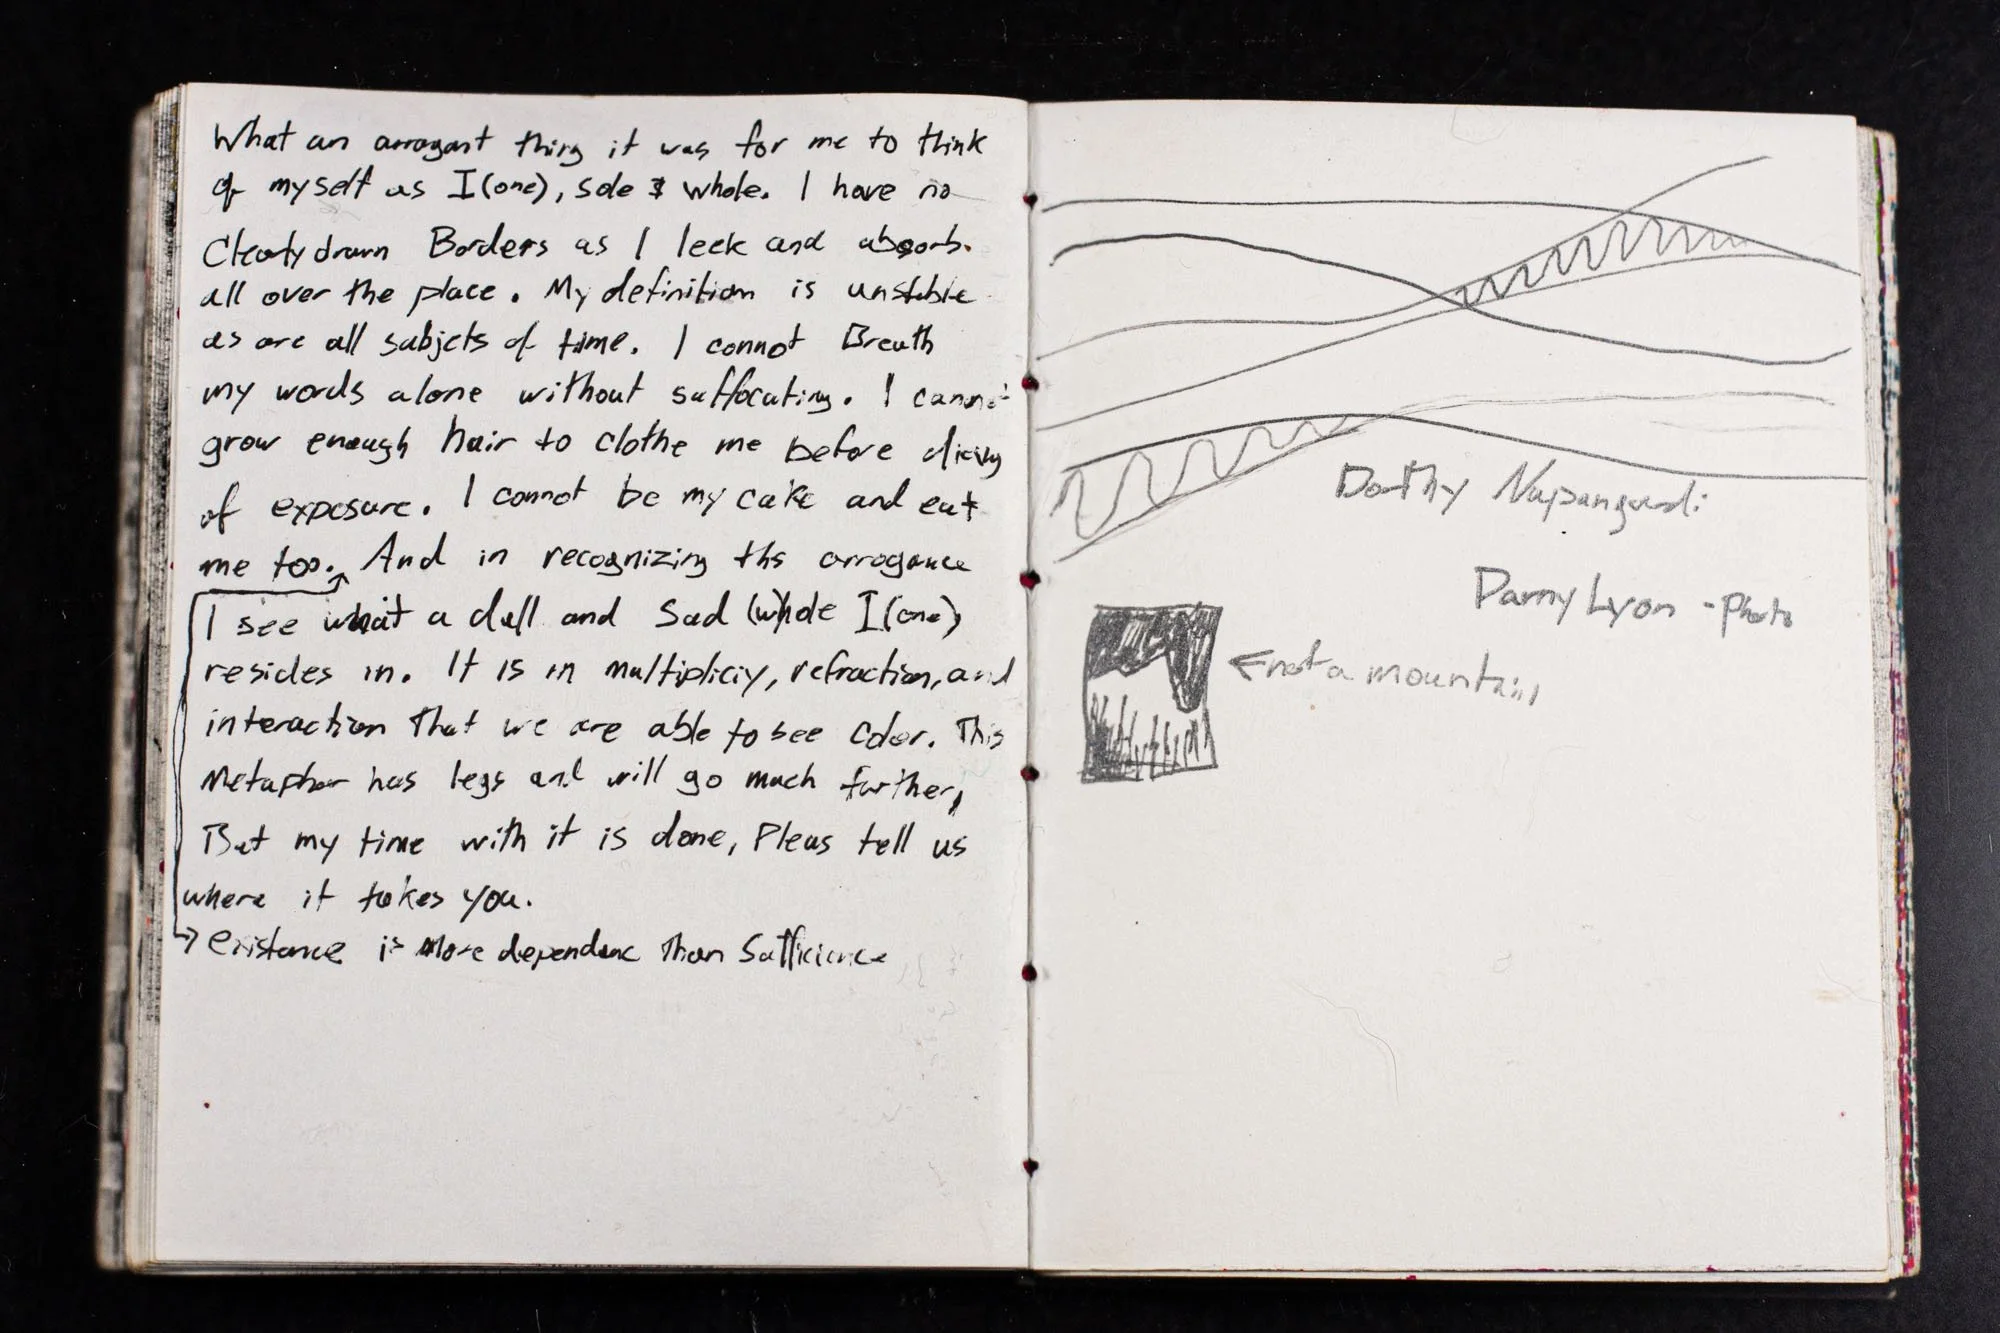 What an arrogant thing it was for me to think
of myself as I(one), sole & whole. I have no
Clearly drawn Borders as I leek and absorb.
all over the place. My definition is unstable
as are all subjcts of time. I cannot Breath
my words alone without suffocating. I cannot
grow enough hair to clothe me before dieing
of exposure. I cannot be my cake and eat
me too. And in recognizing ths arrogance
I see what a dull and Sad (w)hole I(one)
resides in. It is in multipliciy, refraction, and
interaction that we are able to see color. This
Metaphor has legs and will go much further,
But my time with it is done, Pleas tell us
where it takes you.
→ existance is More dependanc Than Sufficience
Dorthy Napangardi
Danny Lyon - Photo
← not a mountain